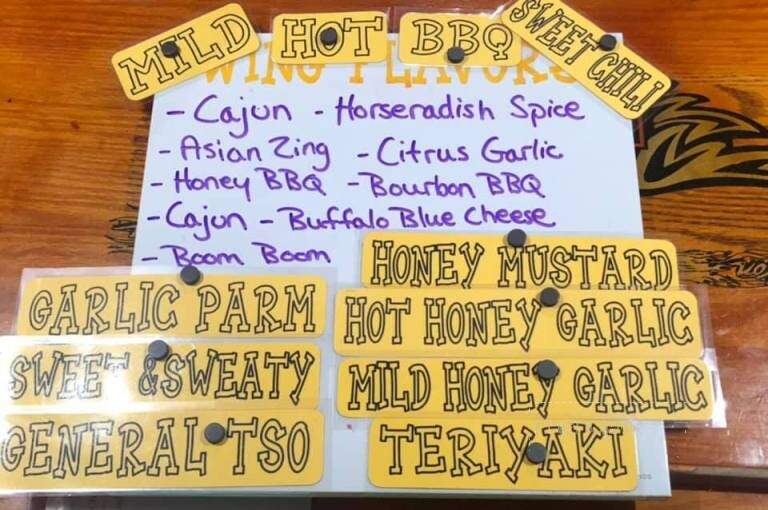 MILD HOT BBQ SWEET CHILI
WING FLAVORS
- Cajun - Horseradish Spice
- Asian Zing - Citrus Garlic
- Honey BBQ - Bourbon BBQ
- Cajun - Buffalo Blue Cheese
- Boom Boom
HONEY MUSTARD
GARLIC PARM
HOT HONEY GARLIC
SWEET & SWEATY
MILD HONEY GARLIC
GENERAL TSO
TERIYAKI